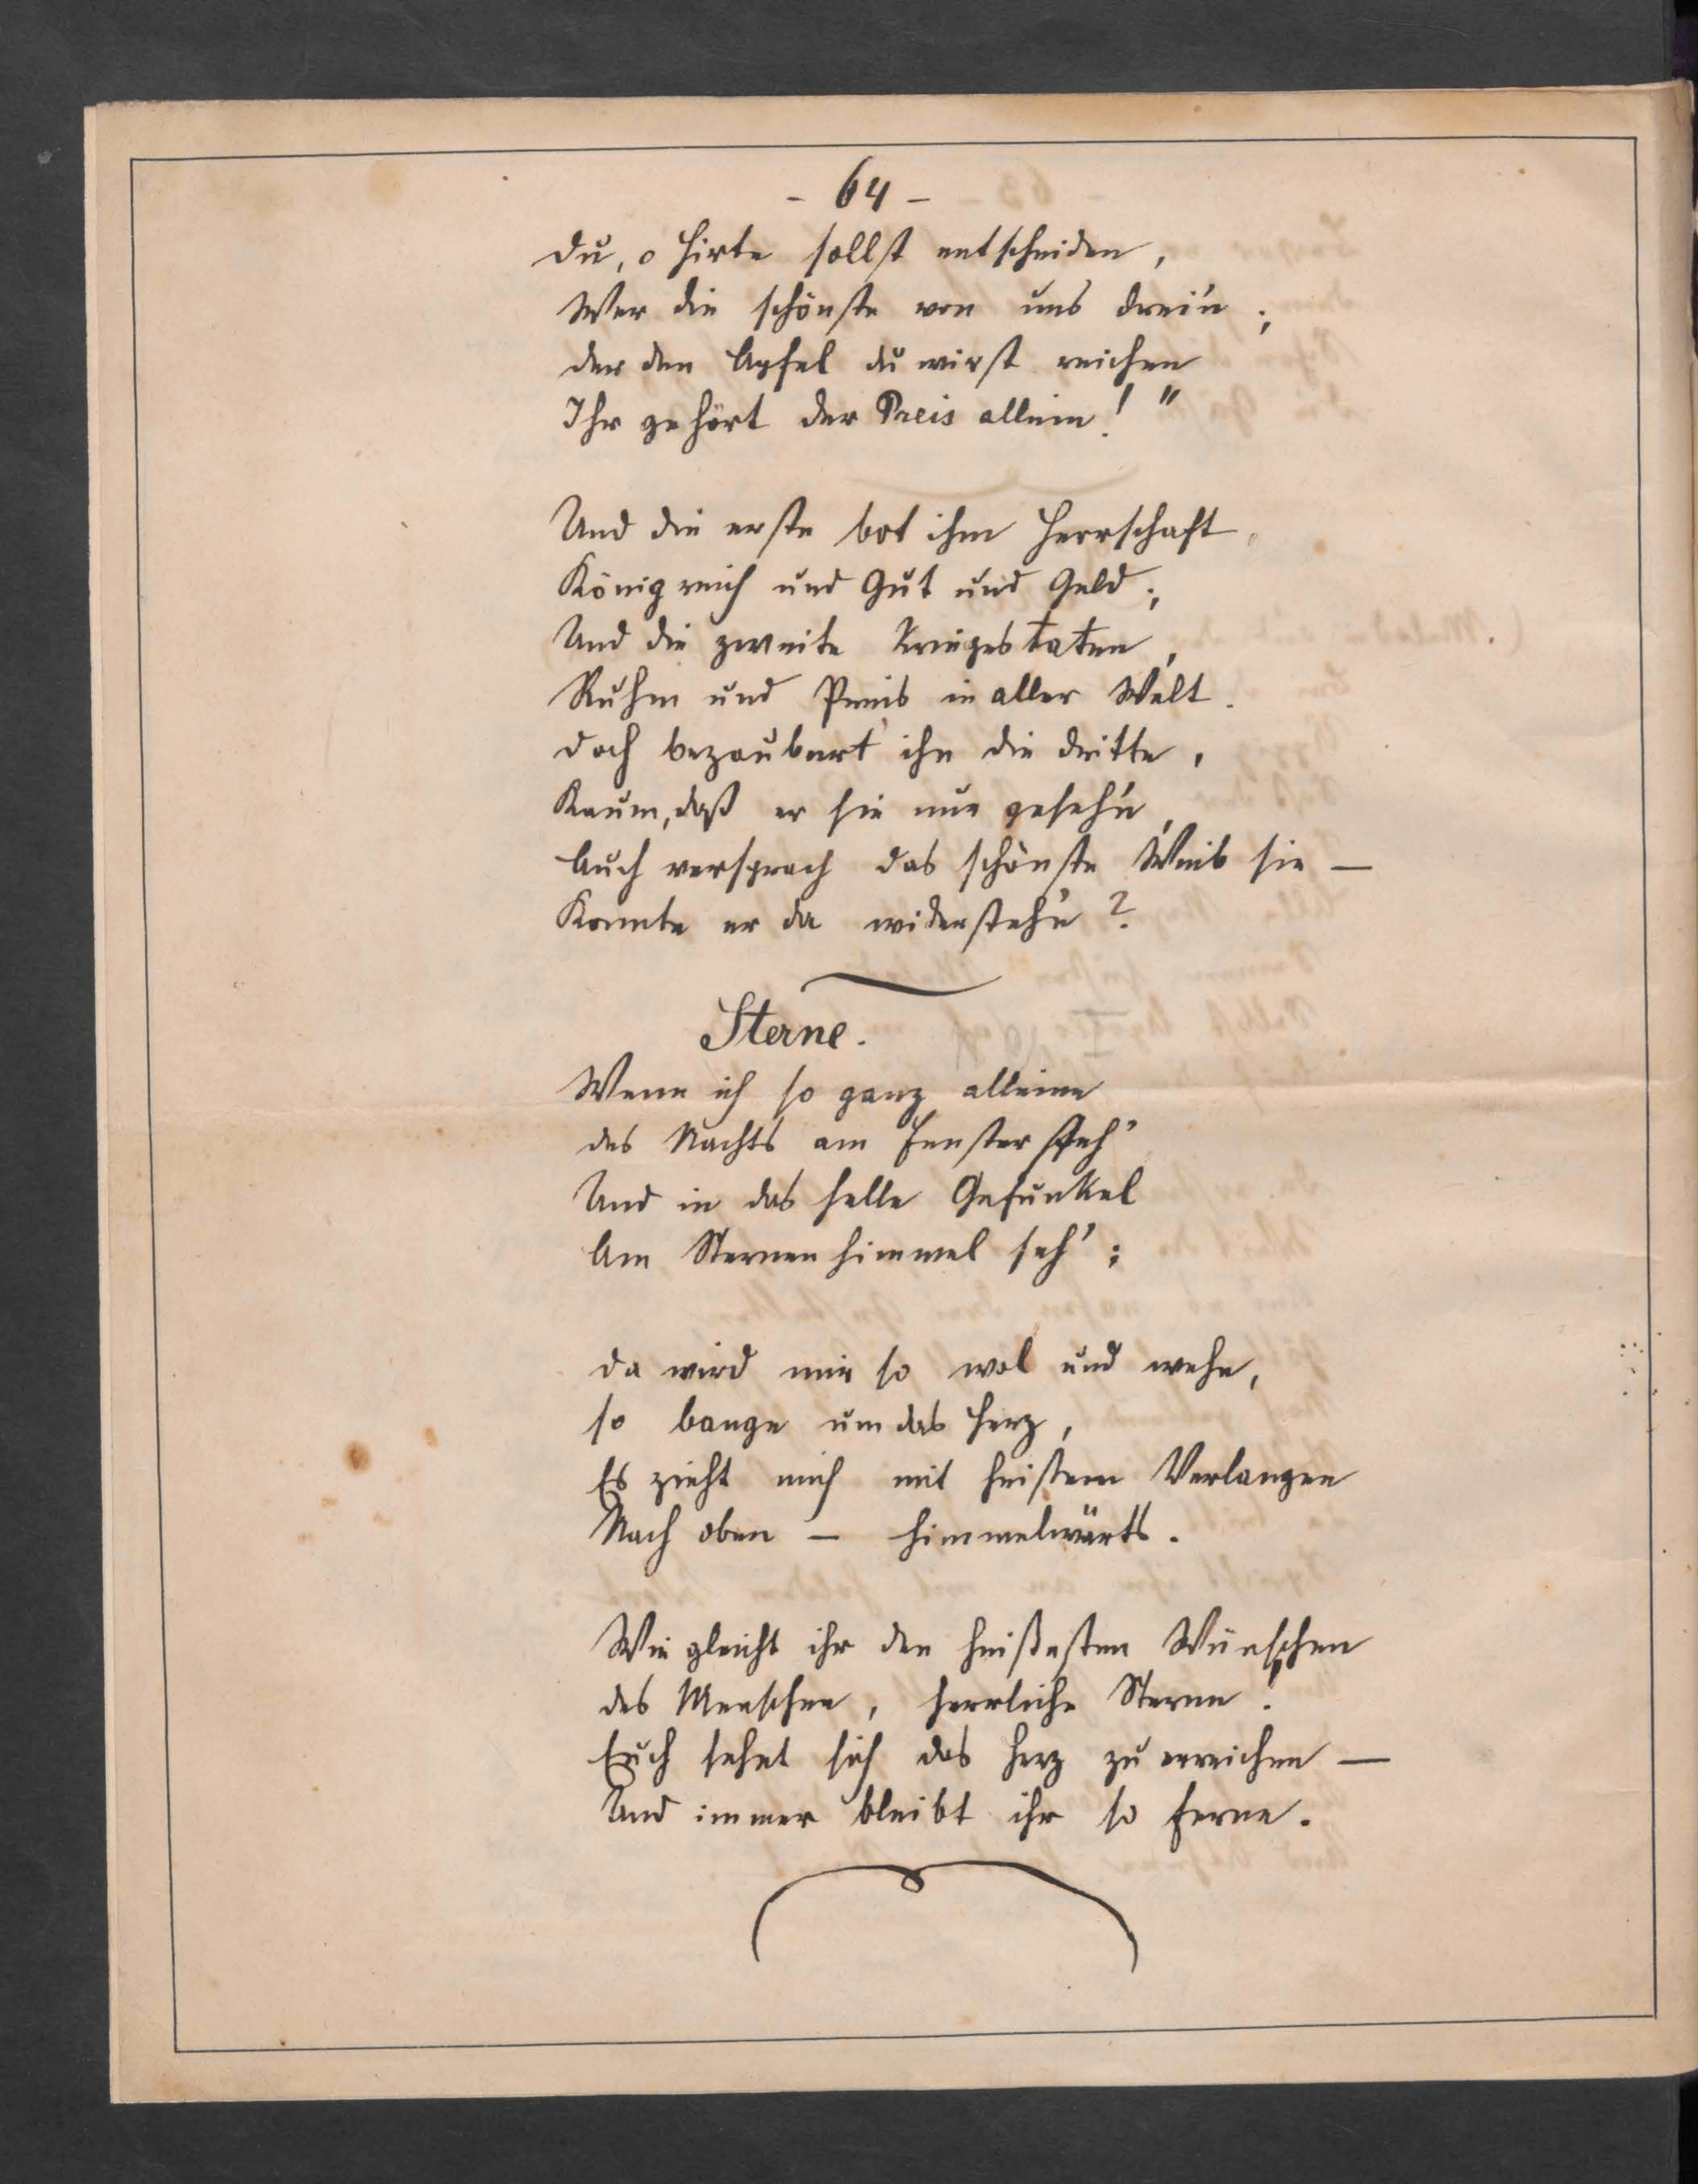 - 64 -
Du, o Hirte sollst entscheiden,
Wer die schönste von uns drei'n;
Der den Apfel du wirst reichen
Ihr gehört der Preis allein!"
Und die erste bot ihm Herrschaft,
Königreich und Gut und Geld;
Und die zweite Kriegestaten,
Ruhm und Preis in aller Welt.
Doch bezaubert' ihn die dritte,
Kaum, daß er sie nur geseh'n,
Auch versprach das schönste Weib sie —
Konnte er da widersteh'n?
Sterne.
Wenn ich so ganz alleine
Des Nachts am Fenster steh'
Und in das helle Gefunkel
Am Sternenhimmel seh';
Da wird mir so wol und wehe,
So bange um das Herz,
Es zieht mich mit heißem Verlangen
Nach oben — himmelwärts.
Wie gleicht ihr den heißesten Wünschen
Des Menschen, herrliche Sterne!
Euch sehnt sich das Herz zu erreichen —
Und immer bleibt ihr so ferne.